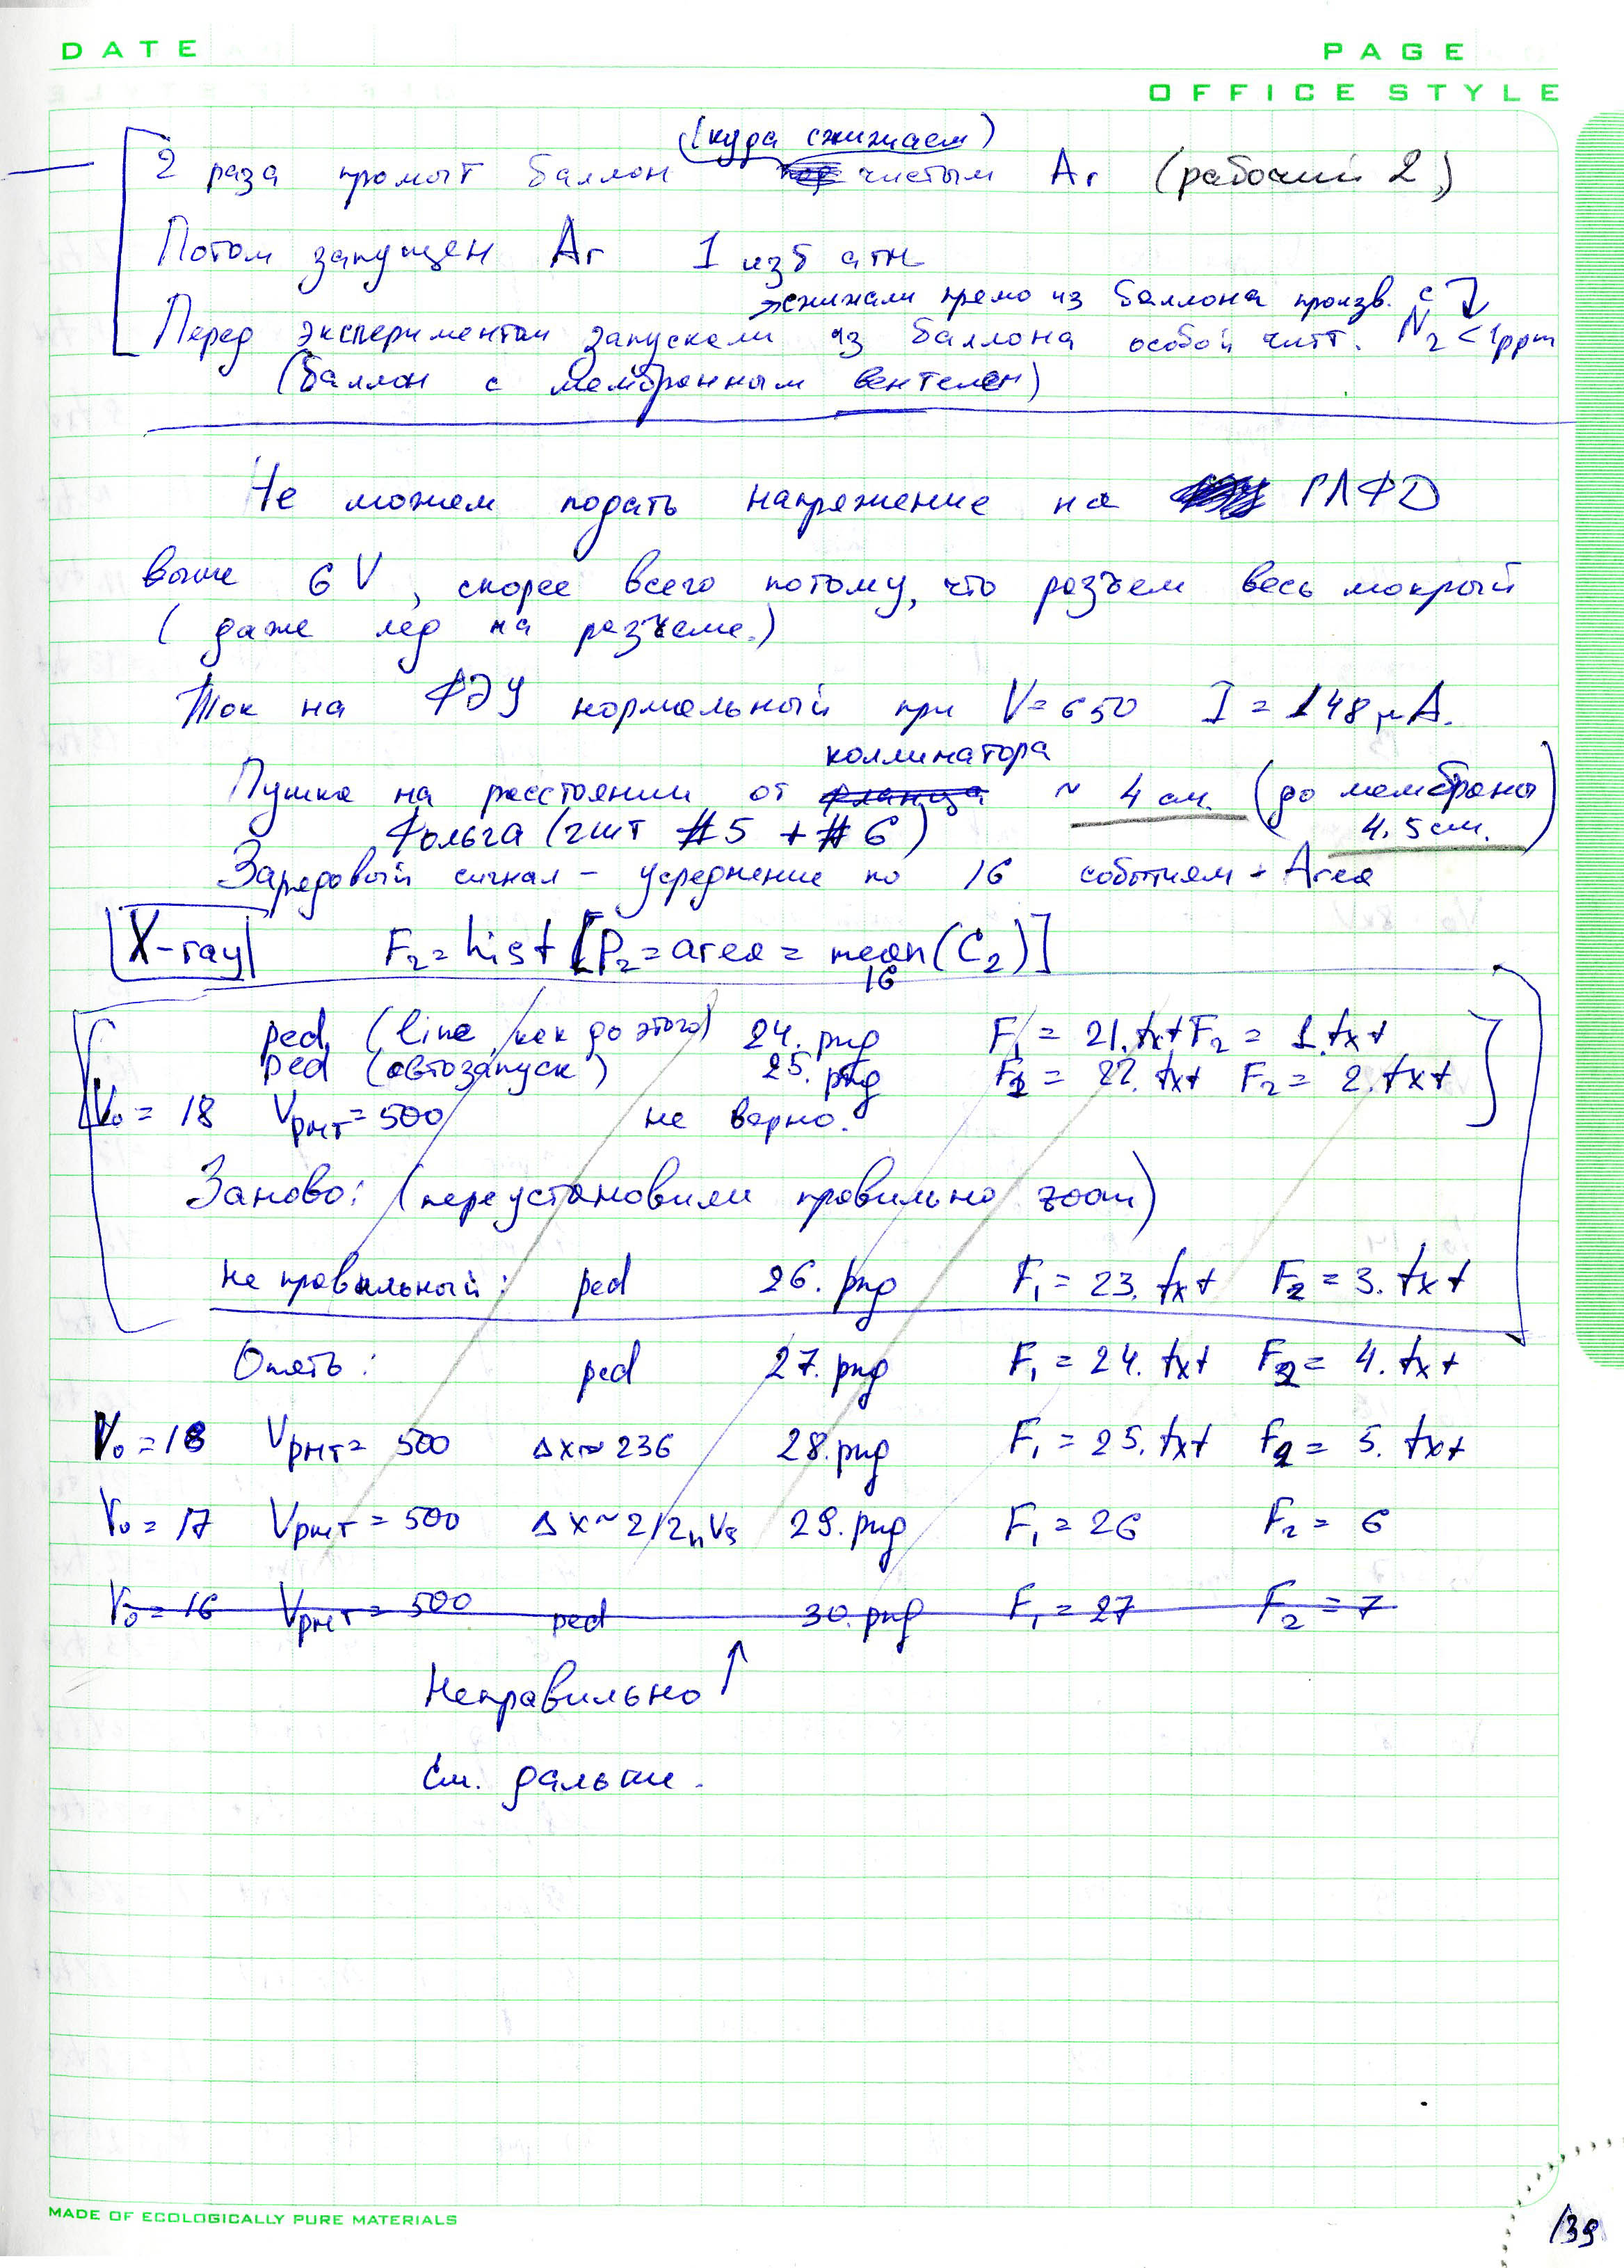 DATE
PAGE
OFFICE STYLE
(куда сжижаем)
2 раза промыт баллон чистым Ar (рабочий 2)
Потом запущен Ar 1 изб атм
сжижали прямо из баллона произв. с
Перед экспериментом запускали из баллона особой чист. N2 < 1ppm
(баллон с мембранным вентелем)
Не можем подать напряжение на ГЛФД
выше 6V, скорее всего потому, что разъем весь мокрый
(даже лед на разъеме.)
Ток на ФЭУ нормальный при V=650 I = 148 μA.
коллиматора
Пушка на расстоянии от фланца ~ 4 см. (до мембраны 4,5 см.)
Фольга (гшт #5 + #6)
Зарядовый сигнал – усреднение по 16 событиям + Area
X-ray F2 = hist [P2 = area = mean(C2)]
16
ped (line, как до этого) 24.png F1 = 21.txt F2 = 1.txt
ped (автозапуск) 25.png F1 = 22.txt F2 = 2.txt
V0 = 18 VPMT = 500 не верно.
Заново: (переустановили правильно zoom)
не правильный: ped 26.png F1 = 23.txt F2 = 3.txt
Опять: ped 27.png F1 = 24.txt F2 = 4.txt
V0 = 18 VPMT = 500 Δx ~ 236 28.png F1 = 25.txt F2 = 5.txt
V0 = 17 VPMT = 500 Δx ~ 212nVs 29.png F1 = 26 F2 = 6
V0 = 16 VPMT = 500 ped 30.png F1 = 27 F2 = 7
Неправильно ↑
См. дальше.
MADE OF ECOLOGICALLY PURE MATERIALS
139